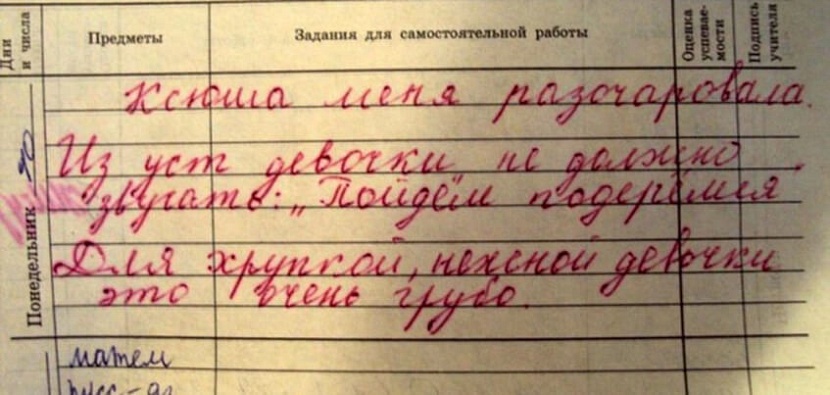 Дни и числа
Предметы
Задания для самостоятельной работы
Оценка успевае-мости
Подпись учителя
Понедельник
Ксюша меня разочаровала.
Из уст девочки не должно
звучать: „Пойдём подерёмся".
Для хрупкой, нежной девочки
это очень грубо.
матем